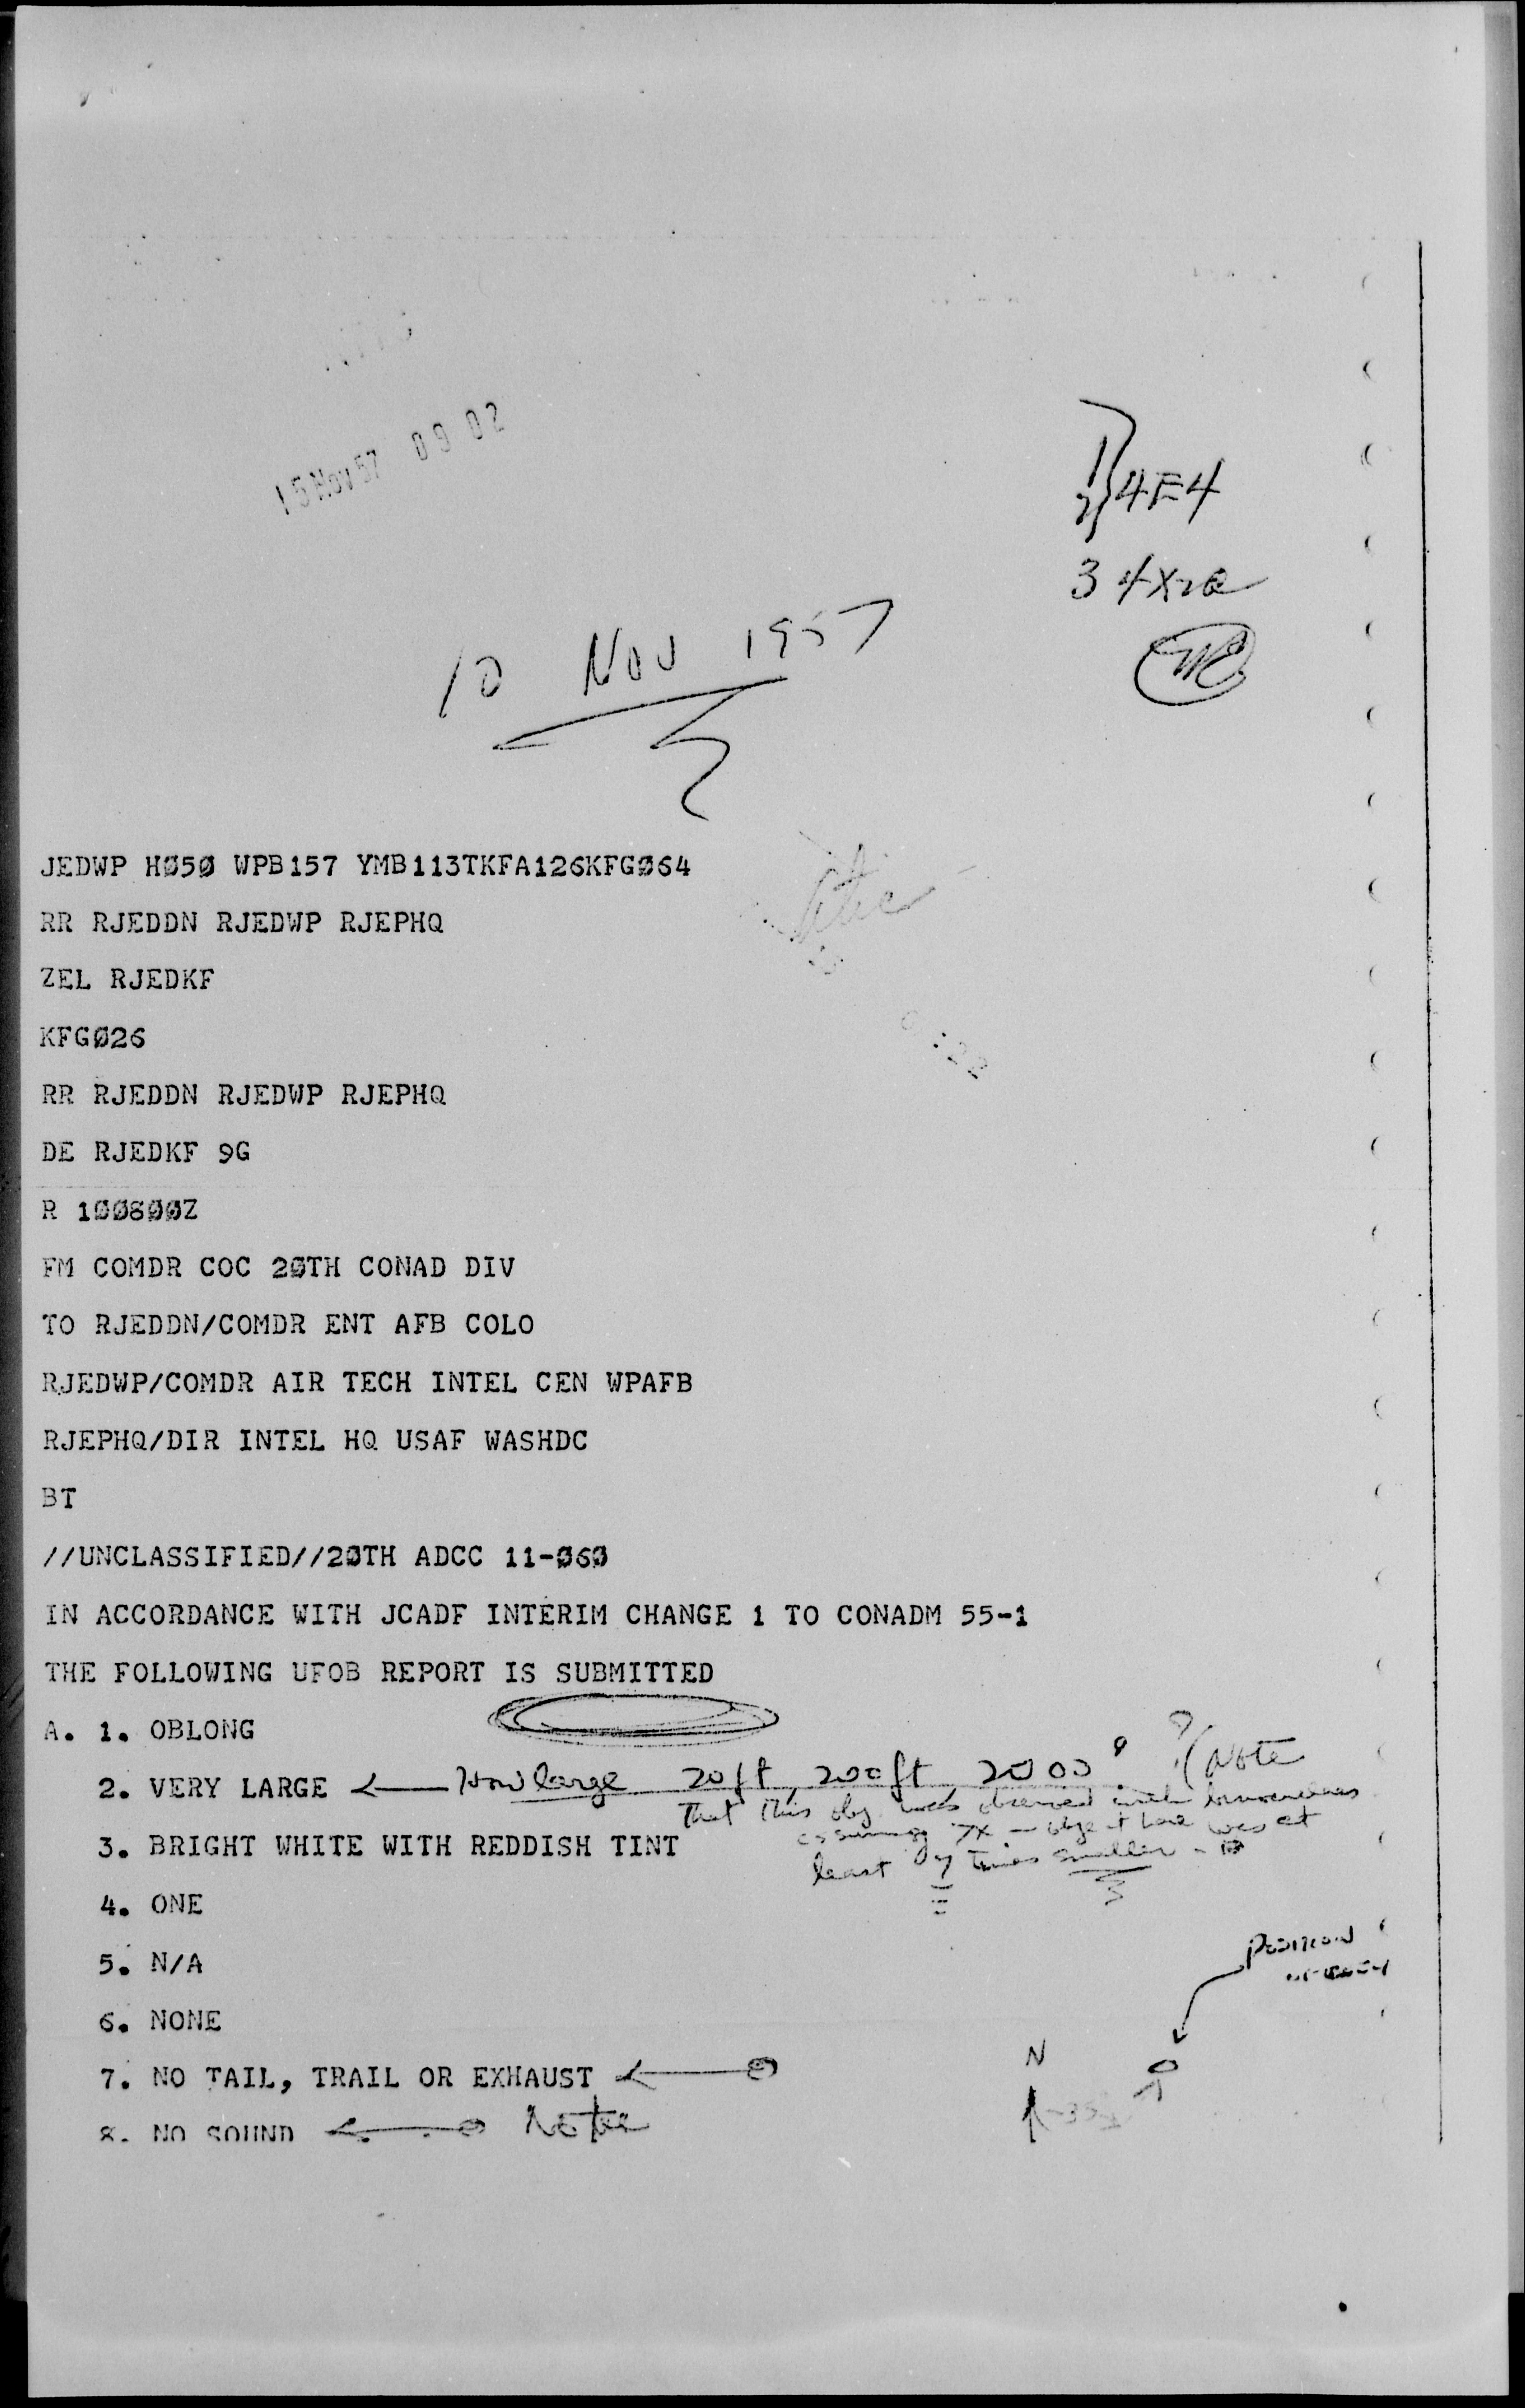 15 Nov 57 09 02
4E4
3 4X2a
10 NOV 1957
JEDWP HØ5Ø WPB157 YMB113TKFA126KFGØ64
RR RJEDDN RJEDWP RJEPHQ
ZEL RJEDKF
KFGØ26
RR RJEDDN RJEDWP RJEPHQ
DE RJEDKF 9G
R 1ØØ8ØØZ
FM COMDR COC 2ØTH CONAD DIV
TO RJEDDN/COMDR ENT AFB COLO
RJEDWP/COMDR AIR TECH INTEL CEN WPAFB
RJEPHQ/DIR INTEL HQ USAF WASHDC
BT
//UNCLASSIFIED//2ØTH ADCC 11-Ø6Ø
IN ACCORDANCE WITH JCADF INTERIM CHANGE 1 TO CONADM 55-1
THE FOLLOWING UFOB REPORT IS SUBMITTED
A. 1. OBLONG
2. VERY LARGE How large 20 ft, 200 ft 2000 ? (Note
That this obj was observed with binoculars
assuming 7X - object here was at
least 7 times smaller.
3. BRIGHT WHITE WITH REDDISH TINT
4. ONE
5. N/A
POSITION
6. NONE
N
7. NO TAIL, TRAIL OR EXHAUST
8. NO SOUND Note